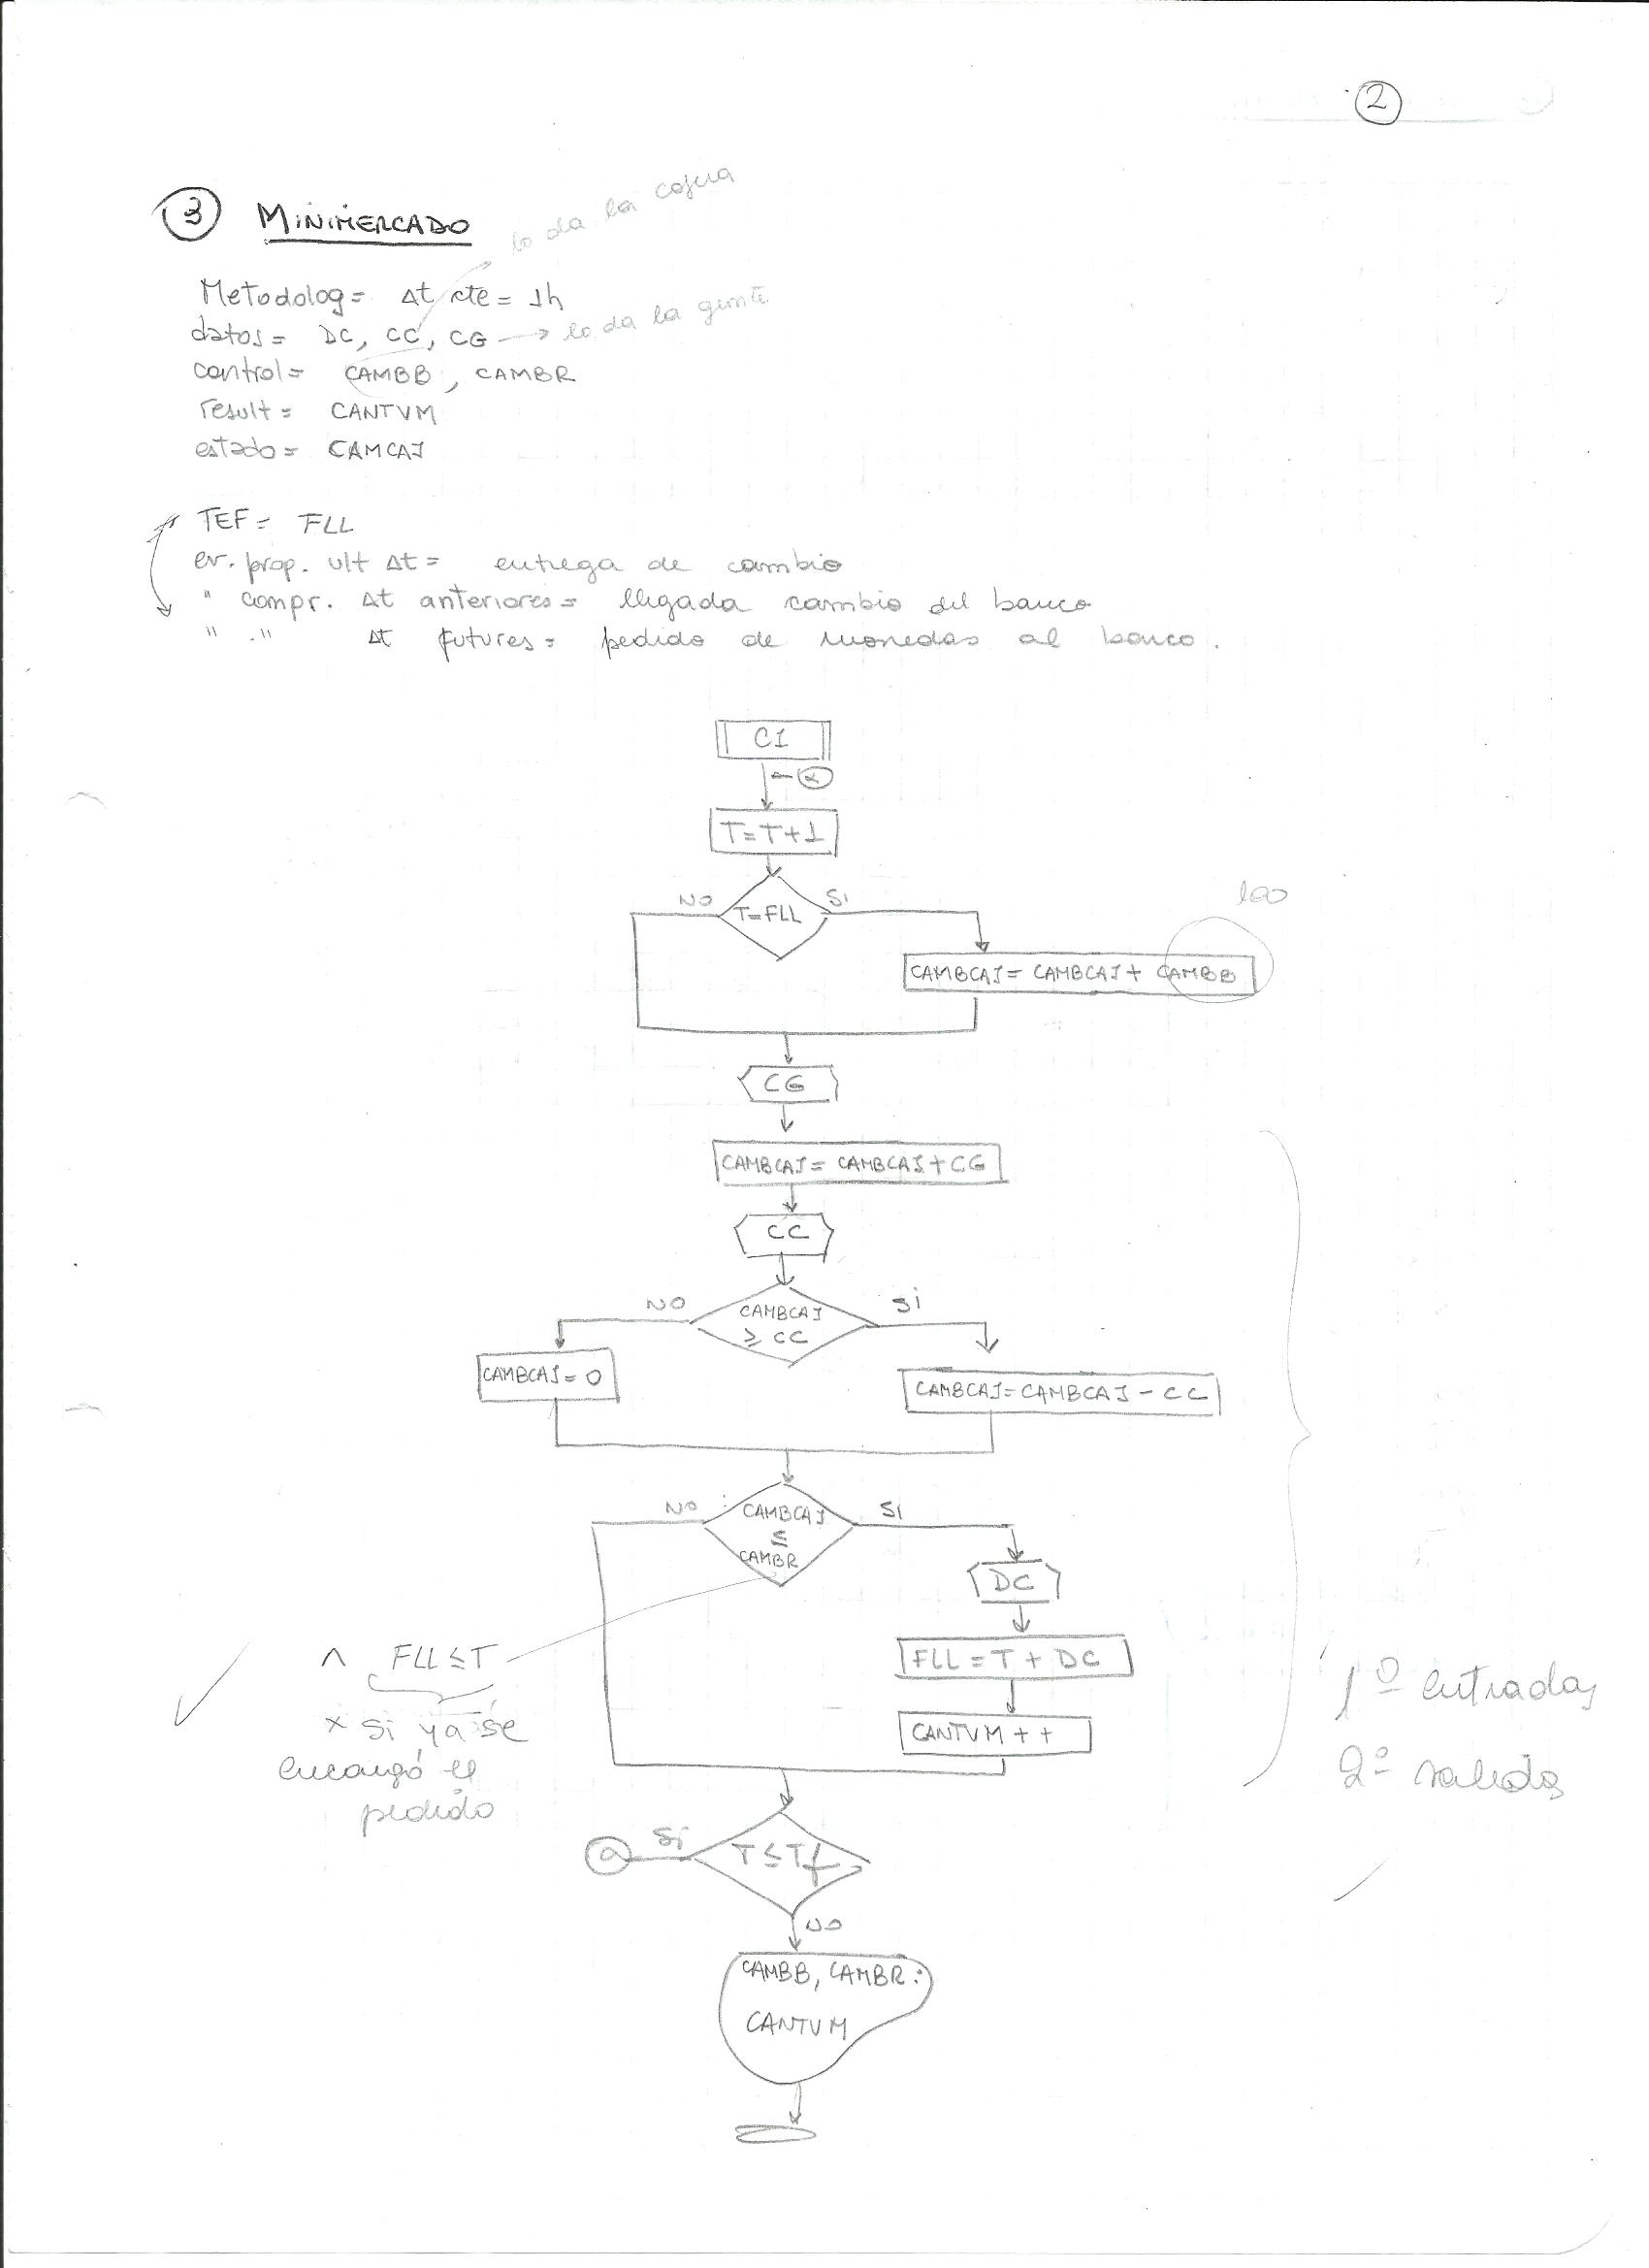 2
3 MINIMERCADO
lo da la cajera
Metodolog = Δt cte = 1h
datos = DC, CC, CG → lo da la gente
control = CAMBB, CAMBR
result = CANTVM
estado = CAMCAJ
TEF = FLL
ev. prop. ult Δt = entrega de cambio
" compr. Δt anteriores = llegada cambio del banco
" " Δt futures = pedido de monedas al banco.
CI
T=T+1
NO
T=FLL
Si
100
CAMBCAJ = CAMBCAJ + CAMBB
CG
CAMBCAJ = CAMBCAJ + CG
CC
NO
CAMBCAJ
≥ CC
Si
CAMBCAJ = 0
CAMBCAJ = CAMBCAJ - CC
NO
CAMBCAJ
≤
CAMBR
Si
DC
∧ FLL ≤ T
FLL = T + DC
x si ya se
encargó el
pedido
CANTVM ++
1º entradas
2º salidas
a
Si
T ≤ Tf
NO
CAMBB, CAMBR:
CANTVM